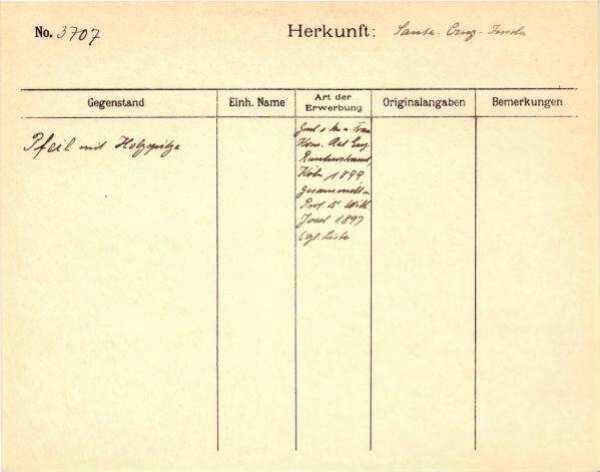 No. 3707 Herkunft: Santa-Cruz-Inseln
Gegenstand Einh. Name Art der Erwerbung Originalangaben Bemerkungen
Pfeil mit Holzspitze
Rautenstrauch,
Köln 1899
gesammelt v.
Prof. Dr. Wilh.
Joest 1897
vgl. Liste